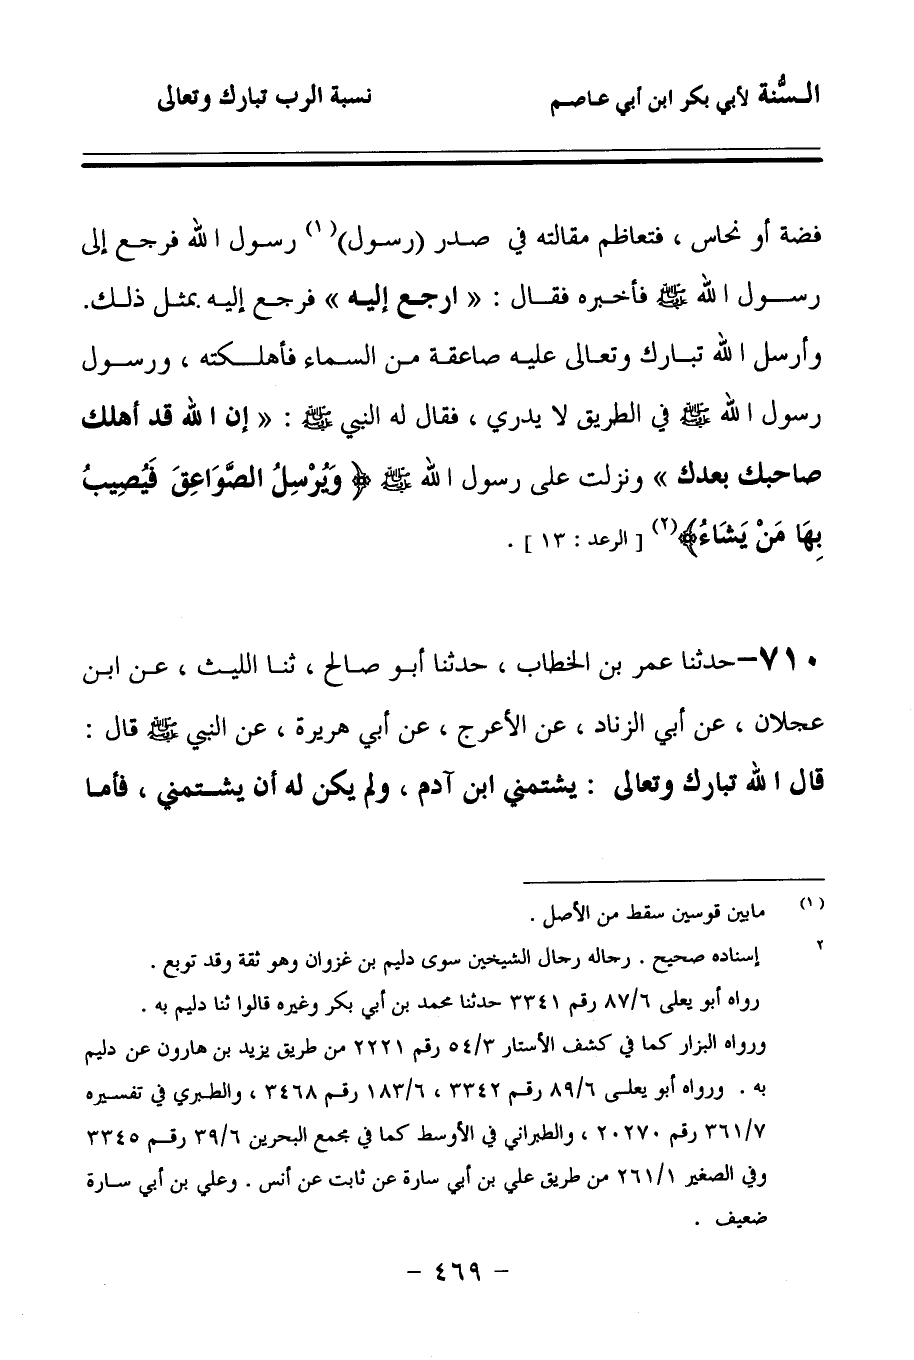 السُّنة لأبي بكر ابن أبي عاصم نسبة الرب تبارك وتعالى
فضة أو نحاس ، فتعاظم مقالته في صدر (رسول)(١) رسول الله فرجع إلى
رسول الله ﷺ فأخبره فقال : « ارجع إليه » فرجع إليه بمثل ذلك.
وأرسل الله تبارك وتعالى عليه صاعقة من السماء فأهلكته ، ورسول
رسول الله ﷺ في الطريق لا يدري ، فقال له النبي ﷺ : « إن الله قد أهلك
صاحبك بعدك » ونزلت على رسول الله ﷺ ﴿ وَيُرْسِلُ الصَّوَاعِقَ فَيُصِيبُ
بِهَا مَنْ يَشَاءُ﴾(٢) [ الرعد : ١٣ ] .
٧١٠–حدثنا عمر بن الخطاب ، حدثنا أبو صالح ، ثنا الليث ، عن ابن
عجلان ، عن أبي الزناد ، عن الأعرج ، عن أبي هريرة ، عن النبي ﷺ قال :
قال الله تبارك وتعالى : يشتمني ابن آدم ، ولم يكن له أن يشتمني ، فأما
(١) مابين قوسين سقط من الأصل .
٢ إسناده صحيح . رحاله رحال الشيخين سوى دليم بن غزوان وهو ثقة وقد توبع .
رواه أبو يعلى ٨٧/٦ رقم ٣٣٤١ حدثنا محمد بن أبي بكر وغيره قالوا ثنا دليم به .
ورواه البزار كما في كشف الأستار ٥٤/٣ رقم ٢٢٢١ من طريق يزيد بن هارون عن دليم
به . ورواه أبو يعلى ٨٩/٦ رقم ٣٣٤٢ ، ١٨٣/٦ رقم ٣٤٦٨ ، والطبري في تفسيره
٣٦١/٧ رقم ٢٠٢٧٠ ، والطبراني في الأوسط كما في مجمع البحرين ٣٩/٦ رقم ٣٣٤٥
وفي الصغير ٢٦١/١ من طريق علي بن أبي سارة عن ثابت عن أنس . وعلي بن أبي سارة
ضعيف .
– ٤٦٩ –